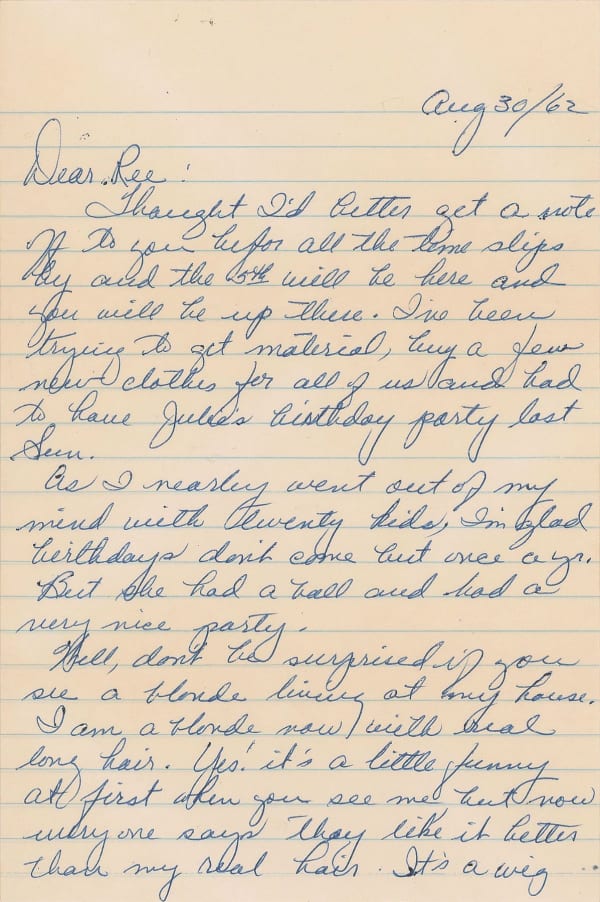 Aug 30/62
Dear Ree!
Thought I'd better get a note
off to you befor all the time slips
by and the 5th will be here and
you will be up there. I've been
trying to get material, buy a few
new clothes for all of us and had
to have Julie's birthday party last
Sun.
As I nearly went out of my
mind with twenty kids, I'm glad
birthdays don't come but once a yr.
But she had a ball and had a
very nice party.
Well, don't be surprised if you
see a blonde living at my house.
I am a blonde now, with real
long hair. Yes! it's a little funny
at first when you see me but now
every one says they like it better
than my real hair. It's a wig